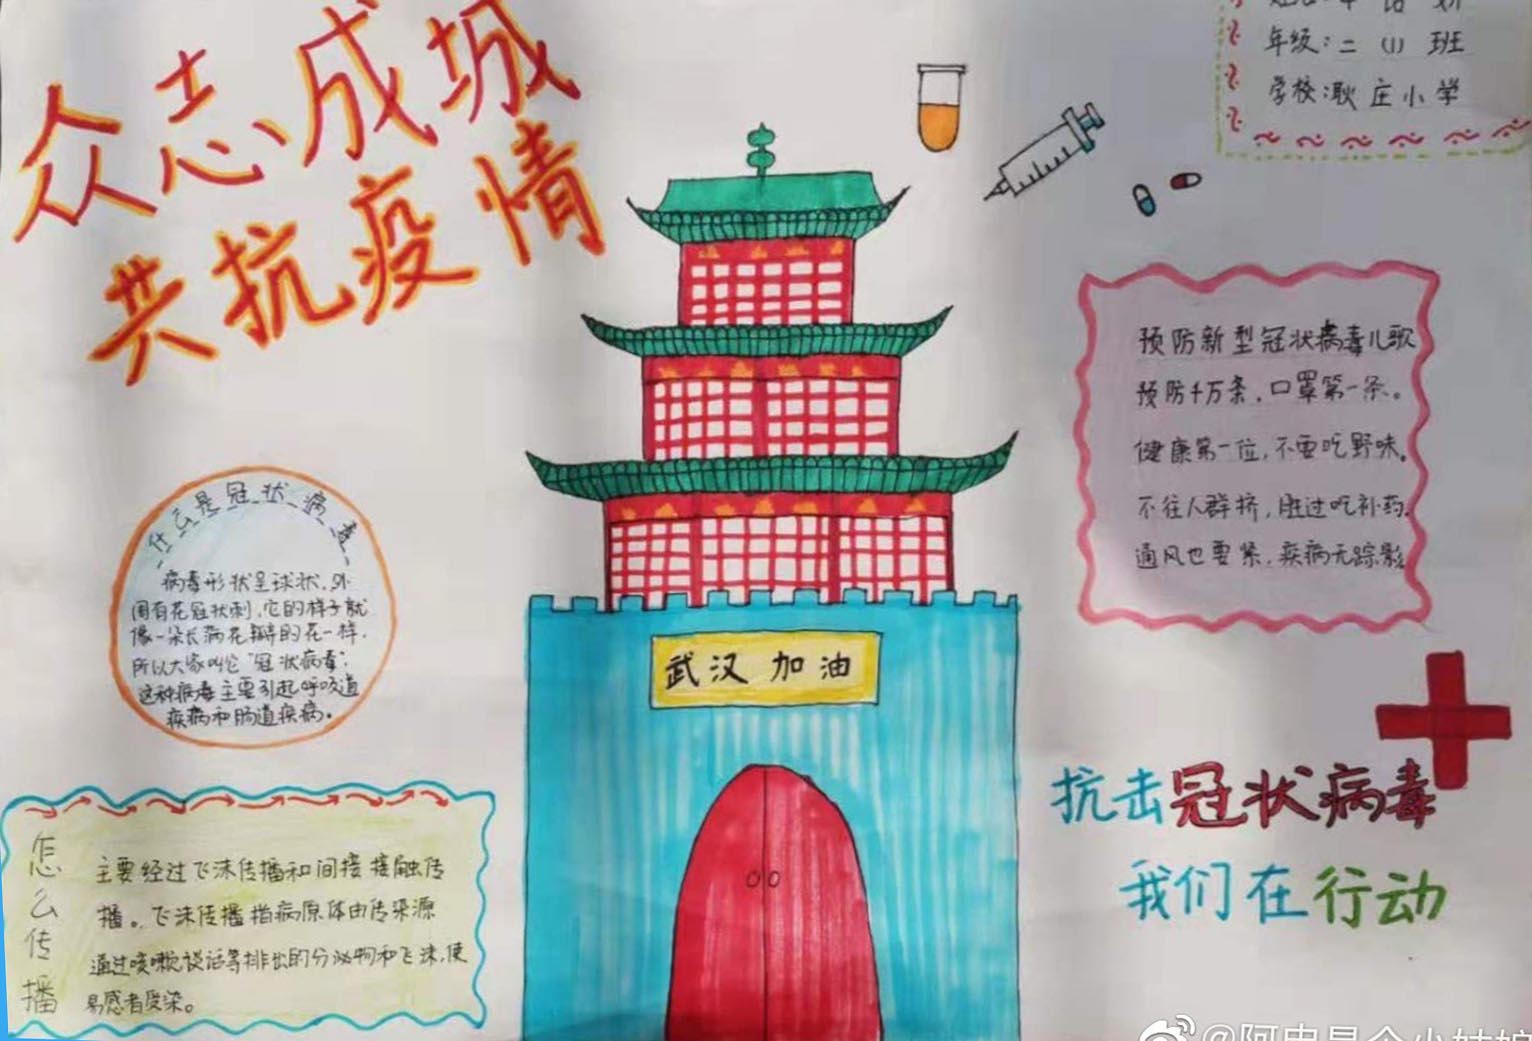 众志成城
共抗疫情
年级:二(1)班
学校:耿庄小学
预防新型冠状病毒儿歌
预防千万条,口罩第一条。
健康第一位,不要吃野味。
不往人群挤,胜过吃补药。
通风也要紧,疾病无踪影
什么是冠状病毒
病毒形状呈球状,外
围有花冠状刺,它的样子就
像一朵长满花瓣的花一样,
所以大家叫它"冠状病毒",
这种病毒主要引起呼吸道
疾病和肠道疾病。
武汉加油
抗击冠状病毒
我们在行动
怎么传播
主要经过飞沫传播和间接接触传
播。飞沫传播指病原体由传染源
通过咳嗽说话等排出的分泌物和飞沫,使
易感者受染。